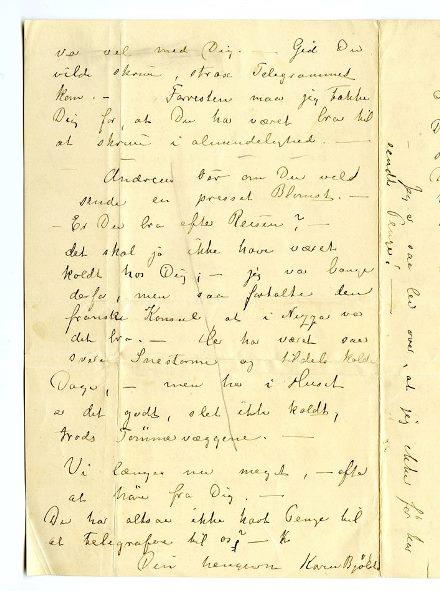 va vel med Dig. — Gid Du
vilde skrive, strax Telegrammet
kom. — Forresten maa jeg takke
Dig for, at Du har været bra til
at skrive i almindelighed. —
Andreas bør om Du vild
sende en presset Blomst. —
— Er Du bra efter Reisen? —
det skal jo ikke have været
koldt hos Dig; — jeg var bange
derfor, men saa fortalte den
franske Konsul at i Nizza var
det bra. — Her har været saa
svære Snestorme og tildels kolde
Dage, — men her i Huset
er det godt, slet ikke koldt,
trods Tømmervæggene. —
Vi længes nu meget, — efter
at høre fra Dig. —
Du har altsaa ikke havt Penge til
at telegrafere til os? —
Din hengivne Karen Bjøl
— Jeg er saa lei over, at jeg ikke før har
sendt Penge! —